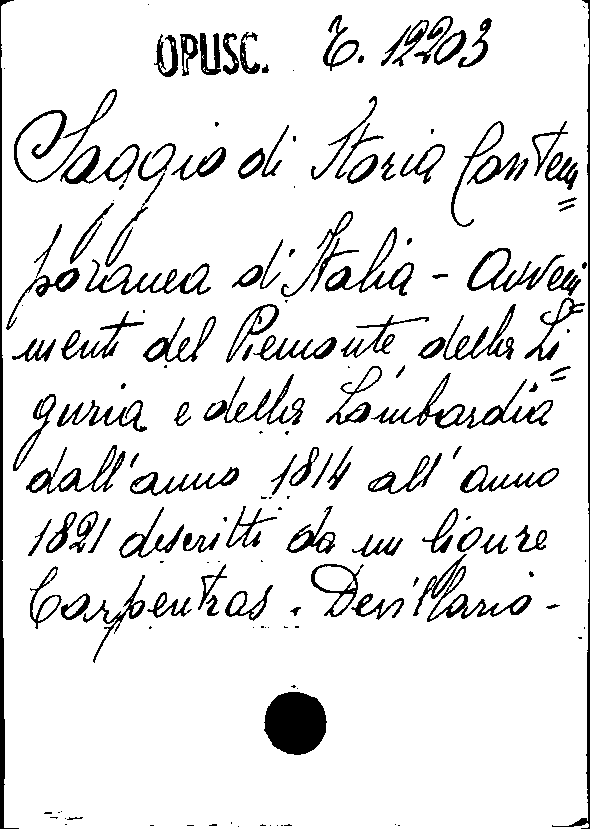 OPUSC. E. 12203
Saggio di Storia Contem=
poranea d'Italia - Avveni=
menti del Piemonte, della Li=
guria e della Lombardia
dall'anno 1814 all'anno
1821 descritti da un ligure
Carpentras. Devillario -